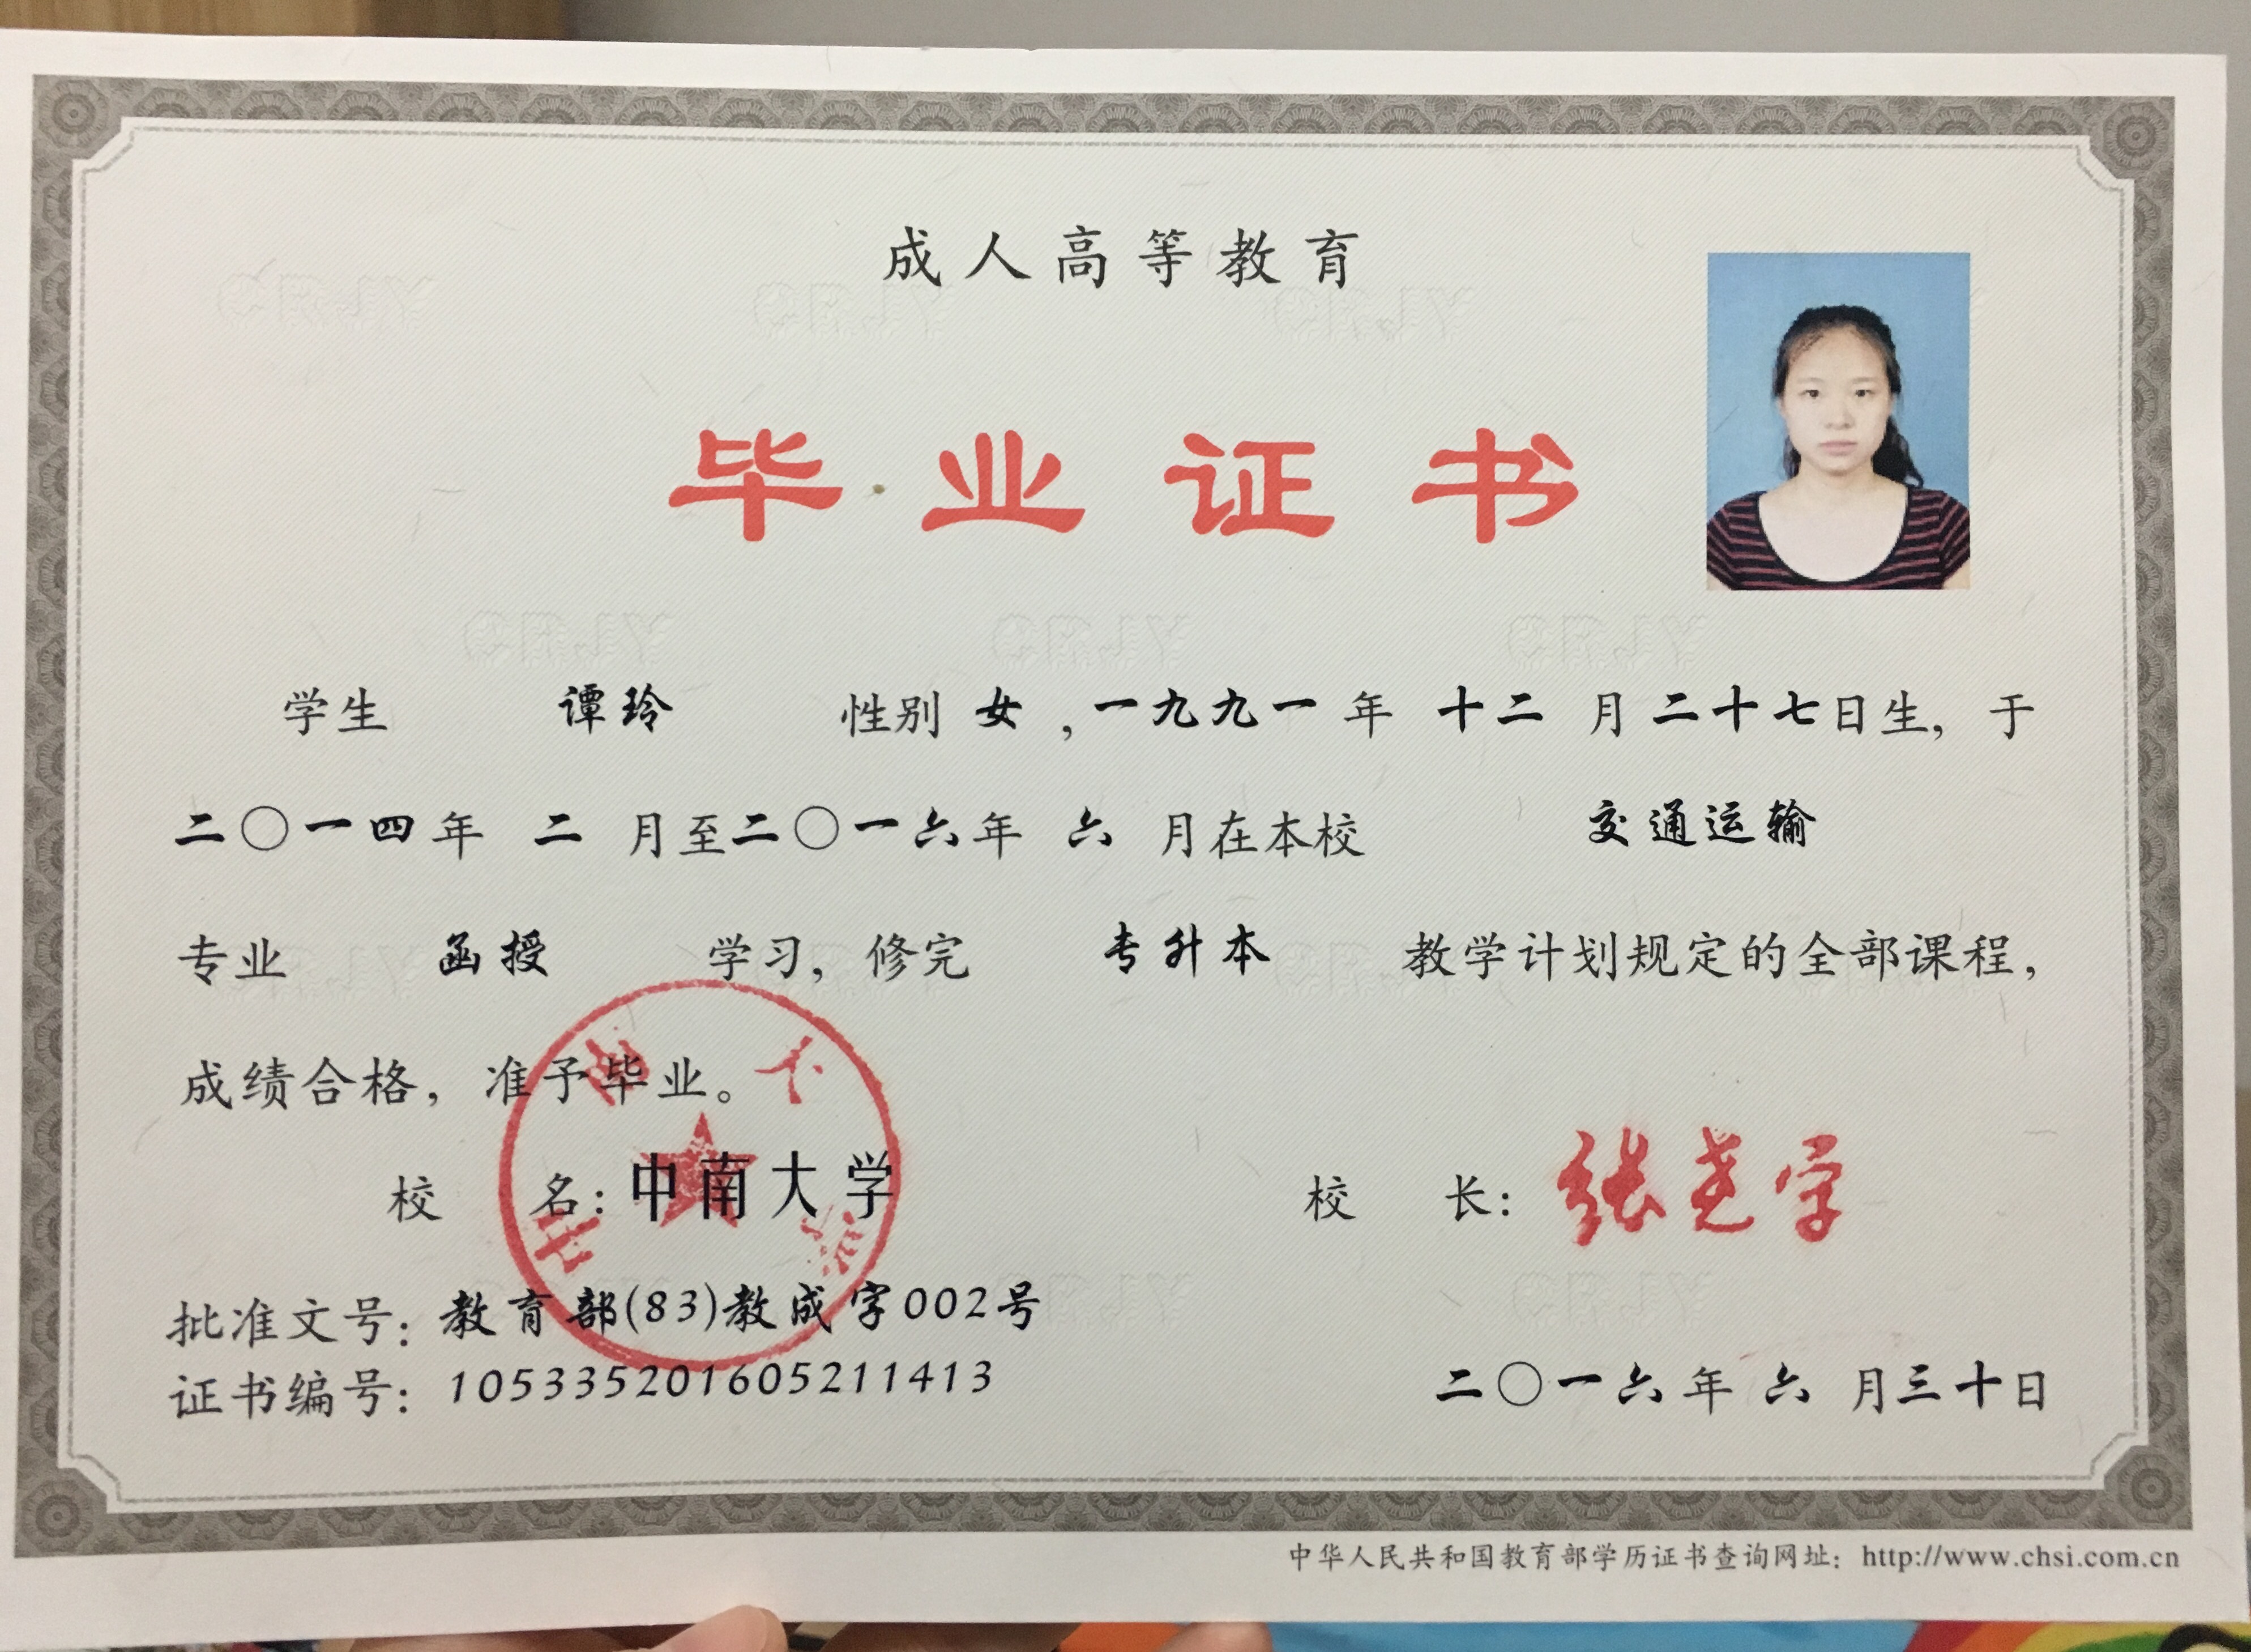 成人高等教育
毕业证书
学生 谭玲 性别 女，一九九一年 十二 月 二十七日生，于
二〇一四年 二 月至二〇一六年 六 月在本校 交通运输
专业 函授 学习，修完 专升本 教学计划规定的全部课程，
成绩合格，准予毕业。
校 名：中南大学 校 长：张尧学
批准文号：教育部(83)教成字002号
证书编号：105335201605211413
二〇一六年 六 月三十日
中华人民共和国教育部学历证书查询网址：http://www.chsi.com.cn